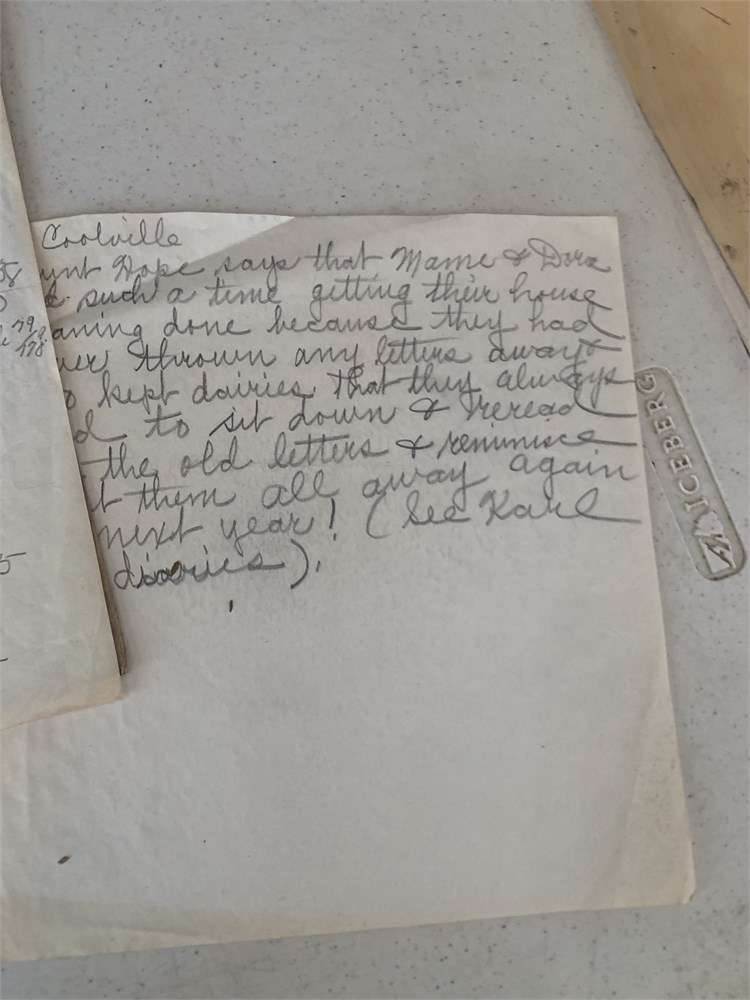 Coolville
unt Hope says that Mame & Dora
such a time getting their house
aning done because they had
ver thrown any letters away &
o kept dairies that they always
d to sit down & reread
the old letters & reminisce
t them all away again
next year! (See Karl
diaries).
ICEBERG